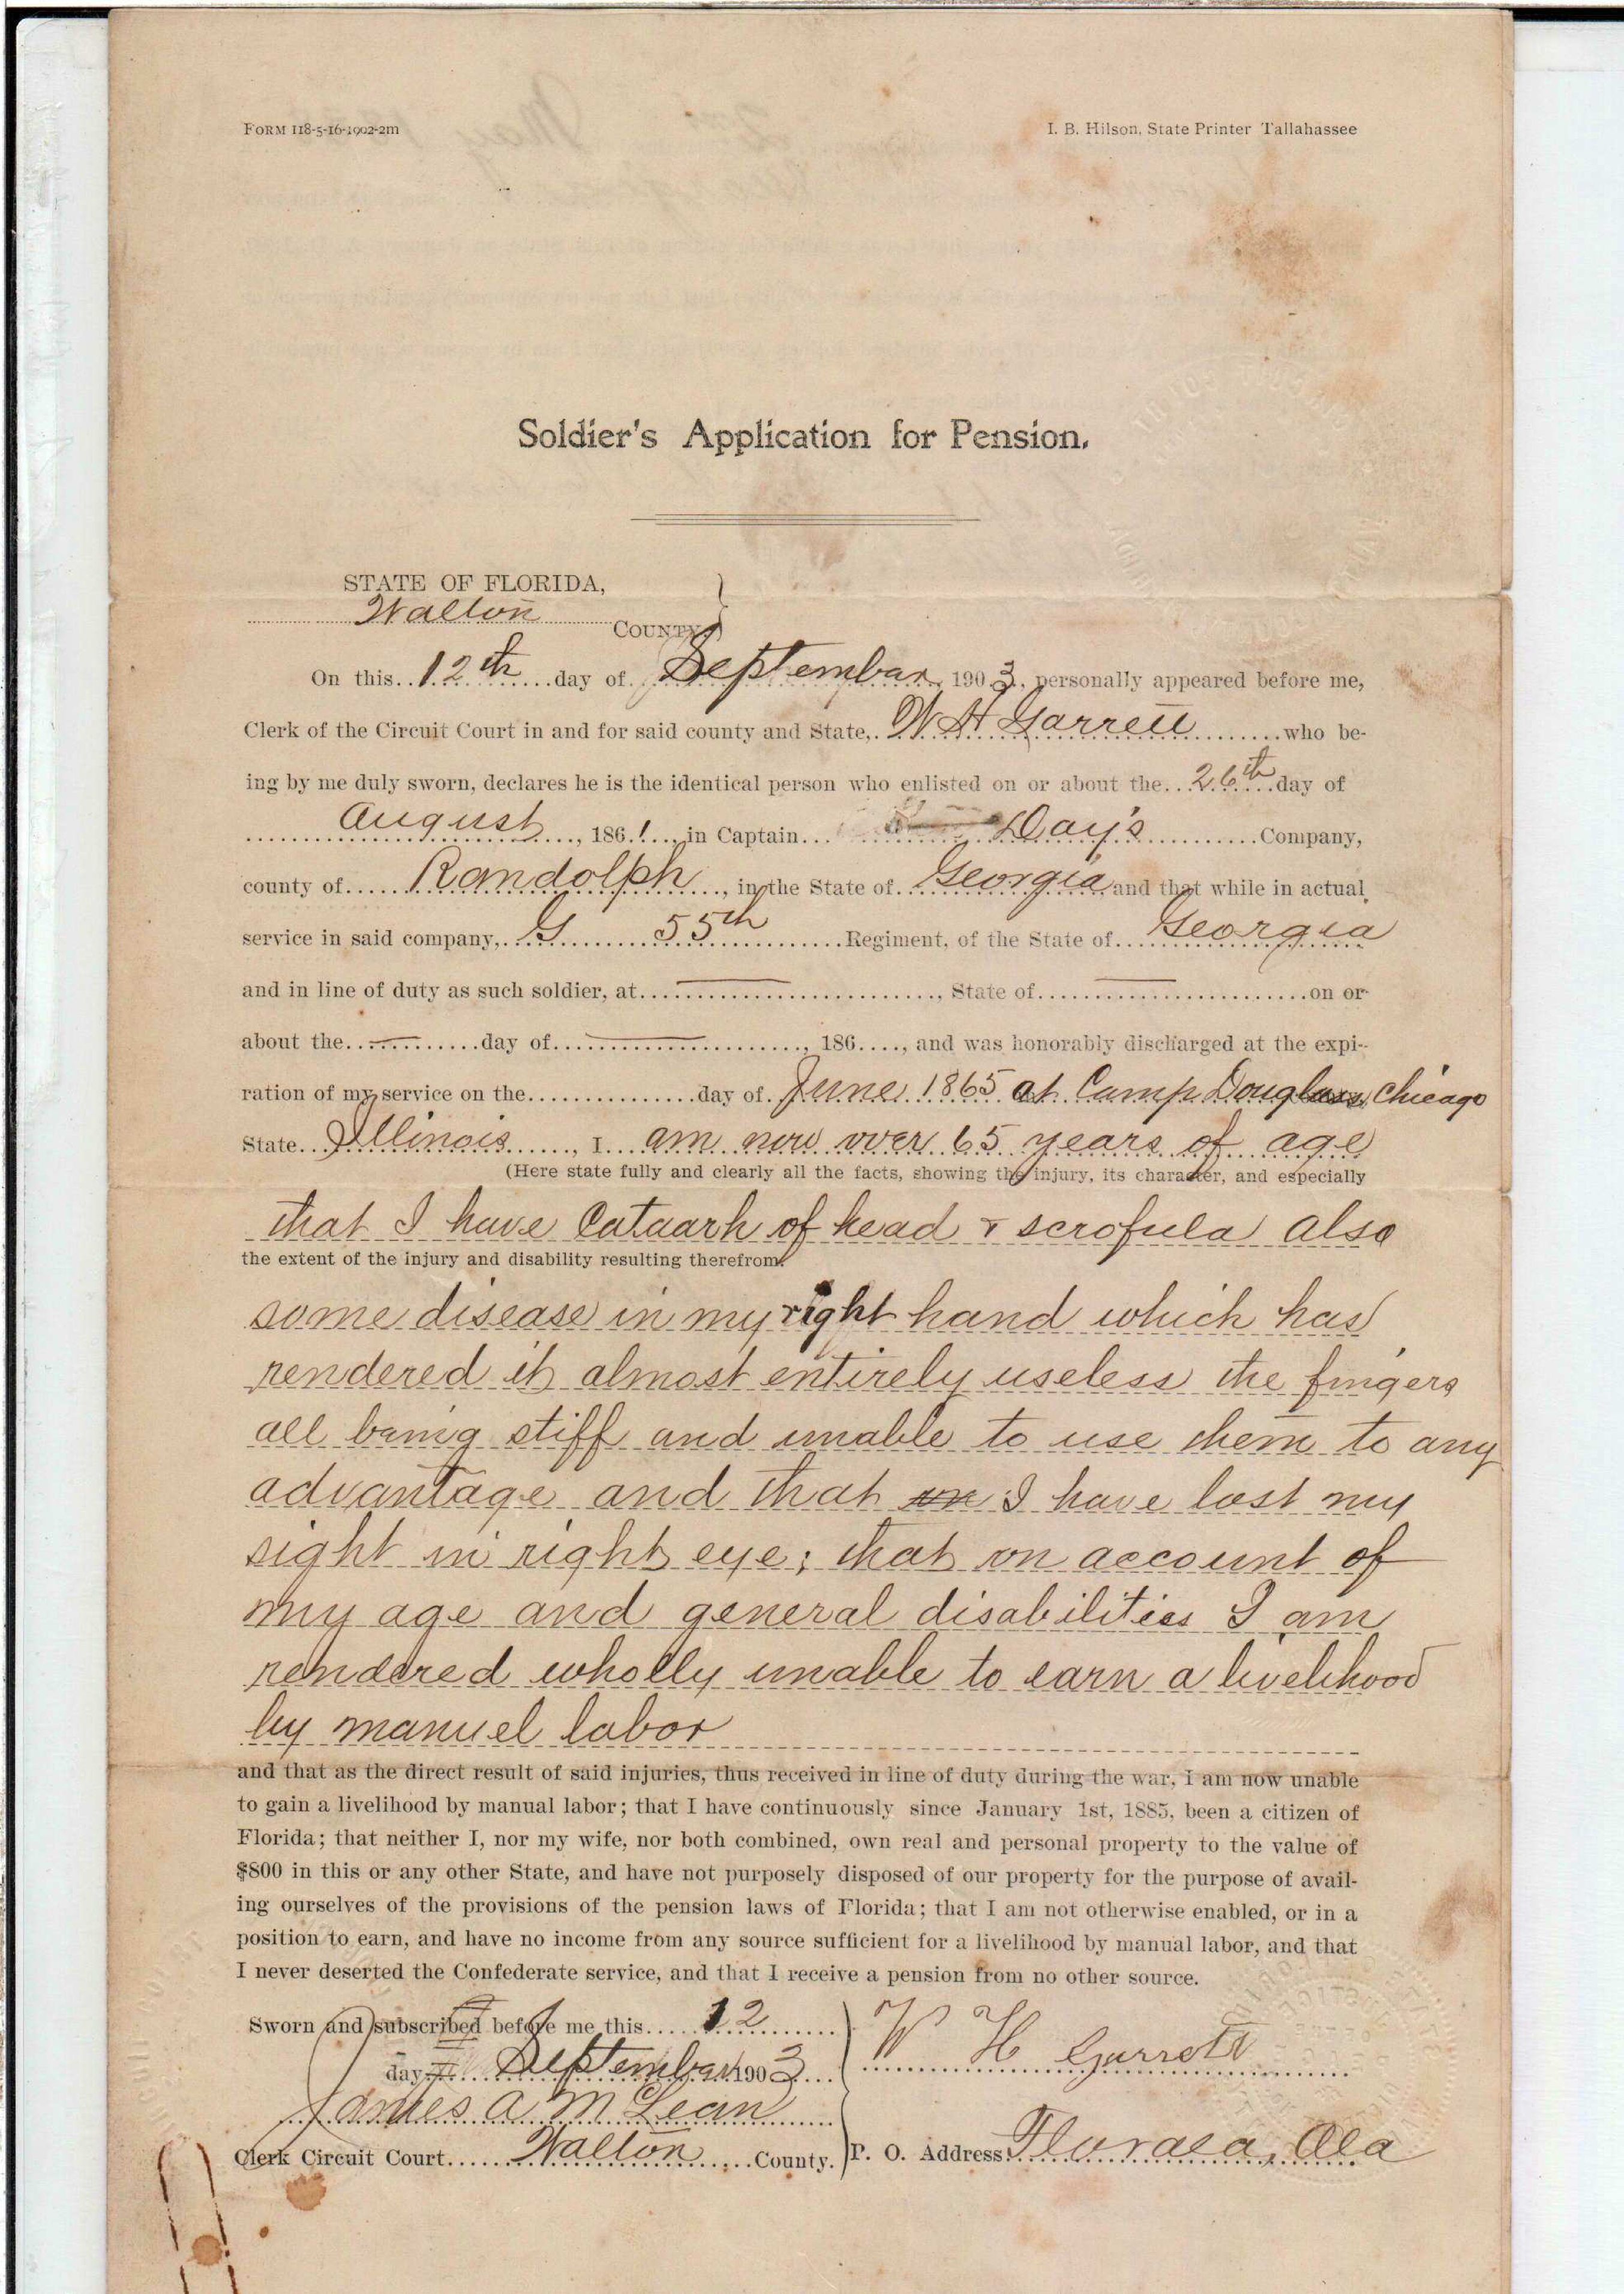 FORM 118-5-16-1902-2m
I. B. Hilson, State Printer Tallahassee
Soldier's Application for Pension.
STATE OF FLORIDA,
Walton COUNTY.
On this 12th day of September 1903, personally appeared before me,
Clerk of the Circuit Court in and for said county and State, W H Garrett who be-
ing by me duly sworn, declares he is the identical person who enlisted on or about the 26th day of
August, 1861, in Captain Day's Company,
county of Randolph, in the State of Georgia and that while in actual
service in said company, G 55th Regiment, of the State of Georgia
and in line of duty as such soldier, at — , State of — on or
about the — day of — , 186...., and was honorably discharged at the expi-
ration of my service on the day of June 1865 at Camp Douglass Chicago
State Illinois, I am now over 65 years of age
(Here state fully and clearly all the facts, showing the injury, its character, and especially
that I have Cataarh of head & scrofula also
the extent of the injury and disability resulting therefrom.
some disease in my right hand which has
rendered it almost entirely useless the fingers
all being stiff and unable to use them to any
advantage and that I have lost my
sight in right eye; that on account of
my age and general disabilities I am
rendered wholly unable to earn a livelihood
by manuel labor
and that as the direct result of said injuries, thus received in line of duty during the war, I am now unable
to gain a livelihood by manual labor; that I have continuously since January 1st, 1885, been a citizen of
Florida; that neither I, nor my wife, nor both combined, own real and personal property to the value of
$800 in this or any other State, and have not purposely disposed of our property for the purpose of avail-
ing ourselves of the provisions of the pension laws of Florida; that I am not otherwise enabled, or in a
position to earn, and have no income from any source sufficient for a livelihood by manual labor, and that
I never deserted the Confederate service, and that I receive a pension from no other source.
Sworn and subscribed before me this 12
day September 1903
W H Garrett
James A McLean
Clerk Circuit Court Walton County.
P. O. Address Florala, Ala